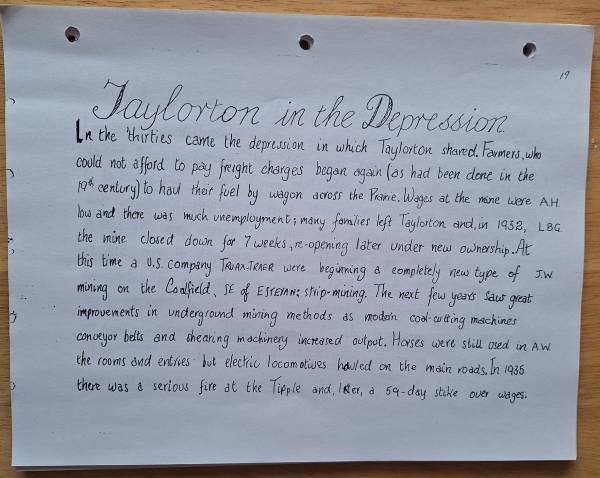 19
Taylorton in the Depression
In the 'thirties came the depression in which Taylorton shared. Farmers, who
could not afford to pay freight charges began again (as had been done in the
19th century) to haul their fuel by wagon across the Prairie. Wages at the mine were A.H.
low and there was much unemployment; many families left Taylorton and, in 1932, L.B.G.
the mine closed down for 7 weeks, re-opening later under new ownership. At
this time a U.S. company TRUAX-TRAER were beginning a completely new type of J.W.
mining on the Coalfield, SE of ESTEVAN: strip-mining. The next few years saw great
improvements in underground mining methods as modern coal-cutting machines
conveyor belts and shearing machinery increased output. Horses were still used in A.W.
the rooms and entries but electric locomotives hauled on the main roads. In 1935
there was a serious fire at the Tipple and, later, a 59-day stike over wages.